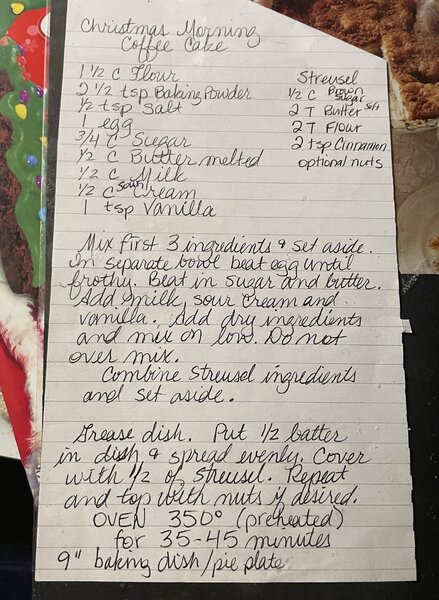 Christmas Morning
Coffee Cake
1 1/2 C Flour
2 1/2 tsp Baking Powder
1/2 tsp Salt
1 egg
3/4 C Sugar
1/2 C Butter melted
1/2 C Milk
1/2 C Sour Cream
1 tsp Vanilla
Streusel
1/2 C Brown Sugar
2 T Butter Soft
2 T Flour
2 tsp Cinnamon
optional nuts
Mix first 3 ingredients & set aside.
In separate bowl beat egg until
frothy. Beat in sugar and butter.
Add milk, sour cream and
vanilla. Add dry ingredients
and mix on low. Do not
over mix.
Combine Streusel ingredients
and set aside.
Grease dish. Put 1/2 batter
in dish & spread evenly. Cover
with 1/2 of Streusel. Repeat
and top with nuts if desired.
OVEN 350° (preheated)
for 35-45 minutes
9" baking dish/pie plate